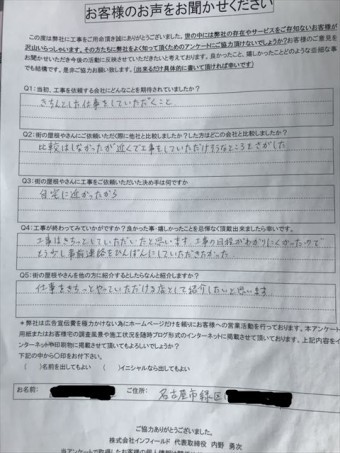 お客様のお声をお聞かせください
この度は弊社に工事をご用命頂き誠にありがとうございます。世の中には弊社の存在やサービスをご存知ないお客様が
沢山いらっしゃいます。その方たちに弊社をよく知って頂くためのアンケートにご協力頂けないでしょうか?お客様のご意見を
お聞かせいただき今後の活動に反映させていただきたいと考えております。良かったこと、嬉しかったことどのような些細な事
でも結構です。是非ご協力お願い致します。(出来るだけ具体的に書いて頂ければ幸いです)
Q1:当初、工事を依頼する会社にどんなことを期待されていましたか?
きちんとした仕事をしていただくこと
Q2:街の屋根やさんにご依頼いただく際に他社と比較しましたか?した方はどこの会社と比較しましたか?
比較はしなかったが近くで工事をしていただけそうなところをさがした
Q3:街の屋根やさんに工事をご依頼いただいた決め手は何ですか
自宅に近かったから
Q4:工事が終わってみていかがですか?良かった事・嬉しかったことを忌憚なく頂戴出来ましたら幸いです。
工事はきちっとしていただいたと思います。工事の日程がわかりにくかったので
もう少し事前連絡をひんぱんにしていただきたかった
Q5:街の屋根やさんを他の方に紹介するとしたらなんと紹介しますか?
仕事をきちっとやっていただける店として紹介したいと思います。
*弊社は広告宣伝費を極力かけない為にホームページだけを頼りにお客様への営業活動を行っております。本アンケート
用紙またはお客様宅の調査風景や施工状況を随時ブログ形式のインターネットに掲載させて頂いております。上記内容をイ
ンターネットや印刷物に掲載させて頂いてもよろしいでしょうか?
下記の中から〇印をお付下さい。
( )名前を出してもよい ( )イニシャルなら出してもよい
お名前: ご住所: 名古屋市緑区
ご協力ありがとうございました。
株式会社インフィールド 代表取締役 内野 勇次
当アンケートで取得したお客様の個人情報は